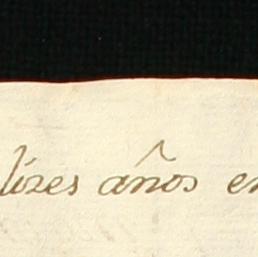 lizes años en